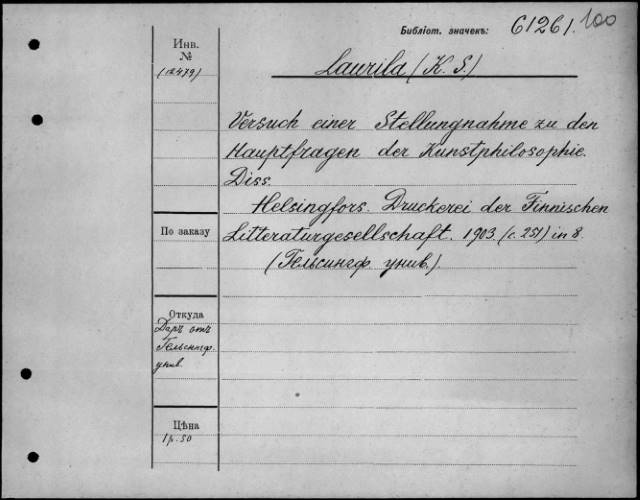 Библіот. значекъ: 61261. 100
Инв. №
(12479)
Laurila (K. S.)
Versuch einer Stellungnahme zu den
Hauptfragen der Kunstphilosophie.
Diss.
Helsingfors. Druckerei der Finnischen
По заказу
Litteraturgesellschaft. 1903. (c. 251) in 8.
(Гельсингф. унив.).
Откуда
Даръ отъ
Гельсингф.
унив.
Цѣна
1 р. 50